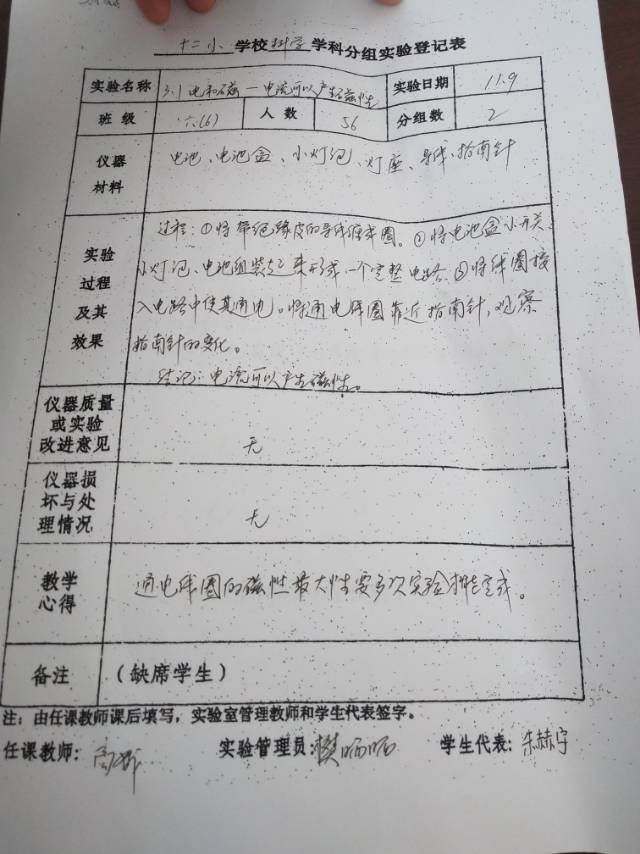 十二小学校科学学科分组实验登记表
实验名称 3.1 电和磁—电流可以产生磁性 实验日期 11.9
班级 六(6) 人数 56 分组数 2
仪器材料 电池、电池盒、小灯泡、灯座、导线、指南针
实验过程及其效果
过程:①将带绝缘皮的导线做成圈。②将电池盒、小开关、
小灯泡、电池组装起来形成一个完整电路。③将线圈接
入电路中使其通电。将通电线圈靠近指南针,观察
指南针的变化。
结论:电流可以产生磁性。
仪器质量或实验改进意见 无
仪器损坏与处理情况 无
教学心得 通电线圈的磁性最大性要多次实验才能完成。
备注 (缺席学生)
注:由任课教师课后填写,实验室管理教师和学生代表签字。
任课教师: 实验管理员:樊 学生代表:朱赫宇